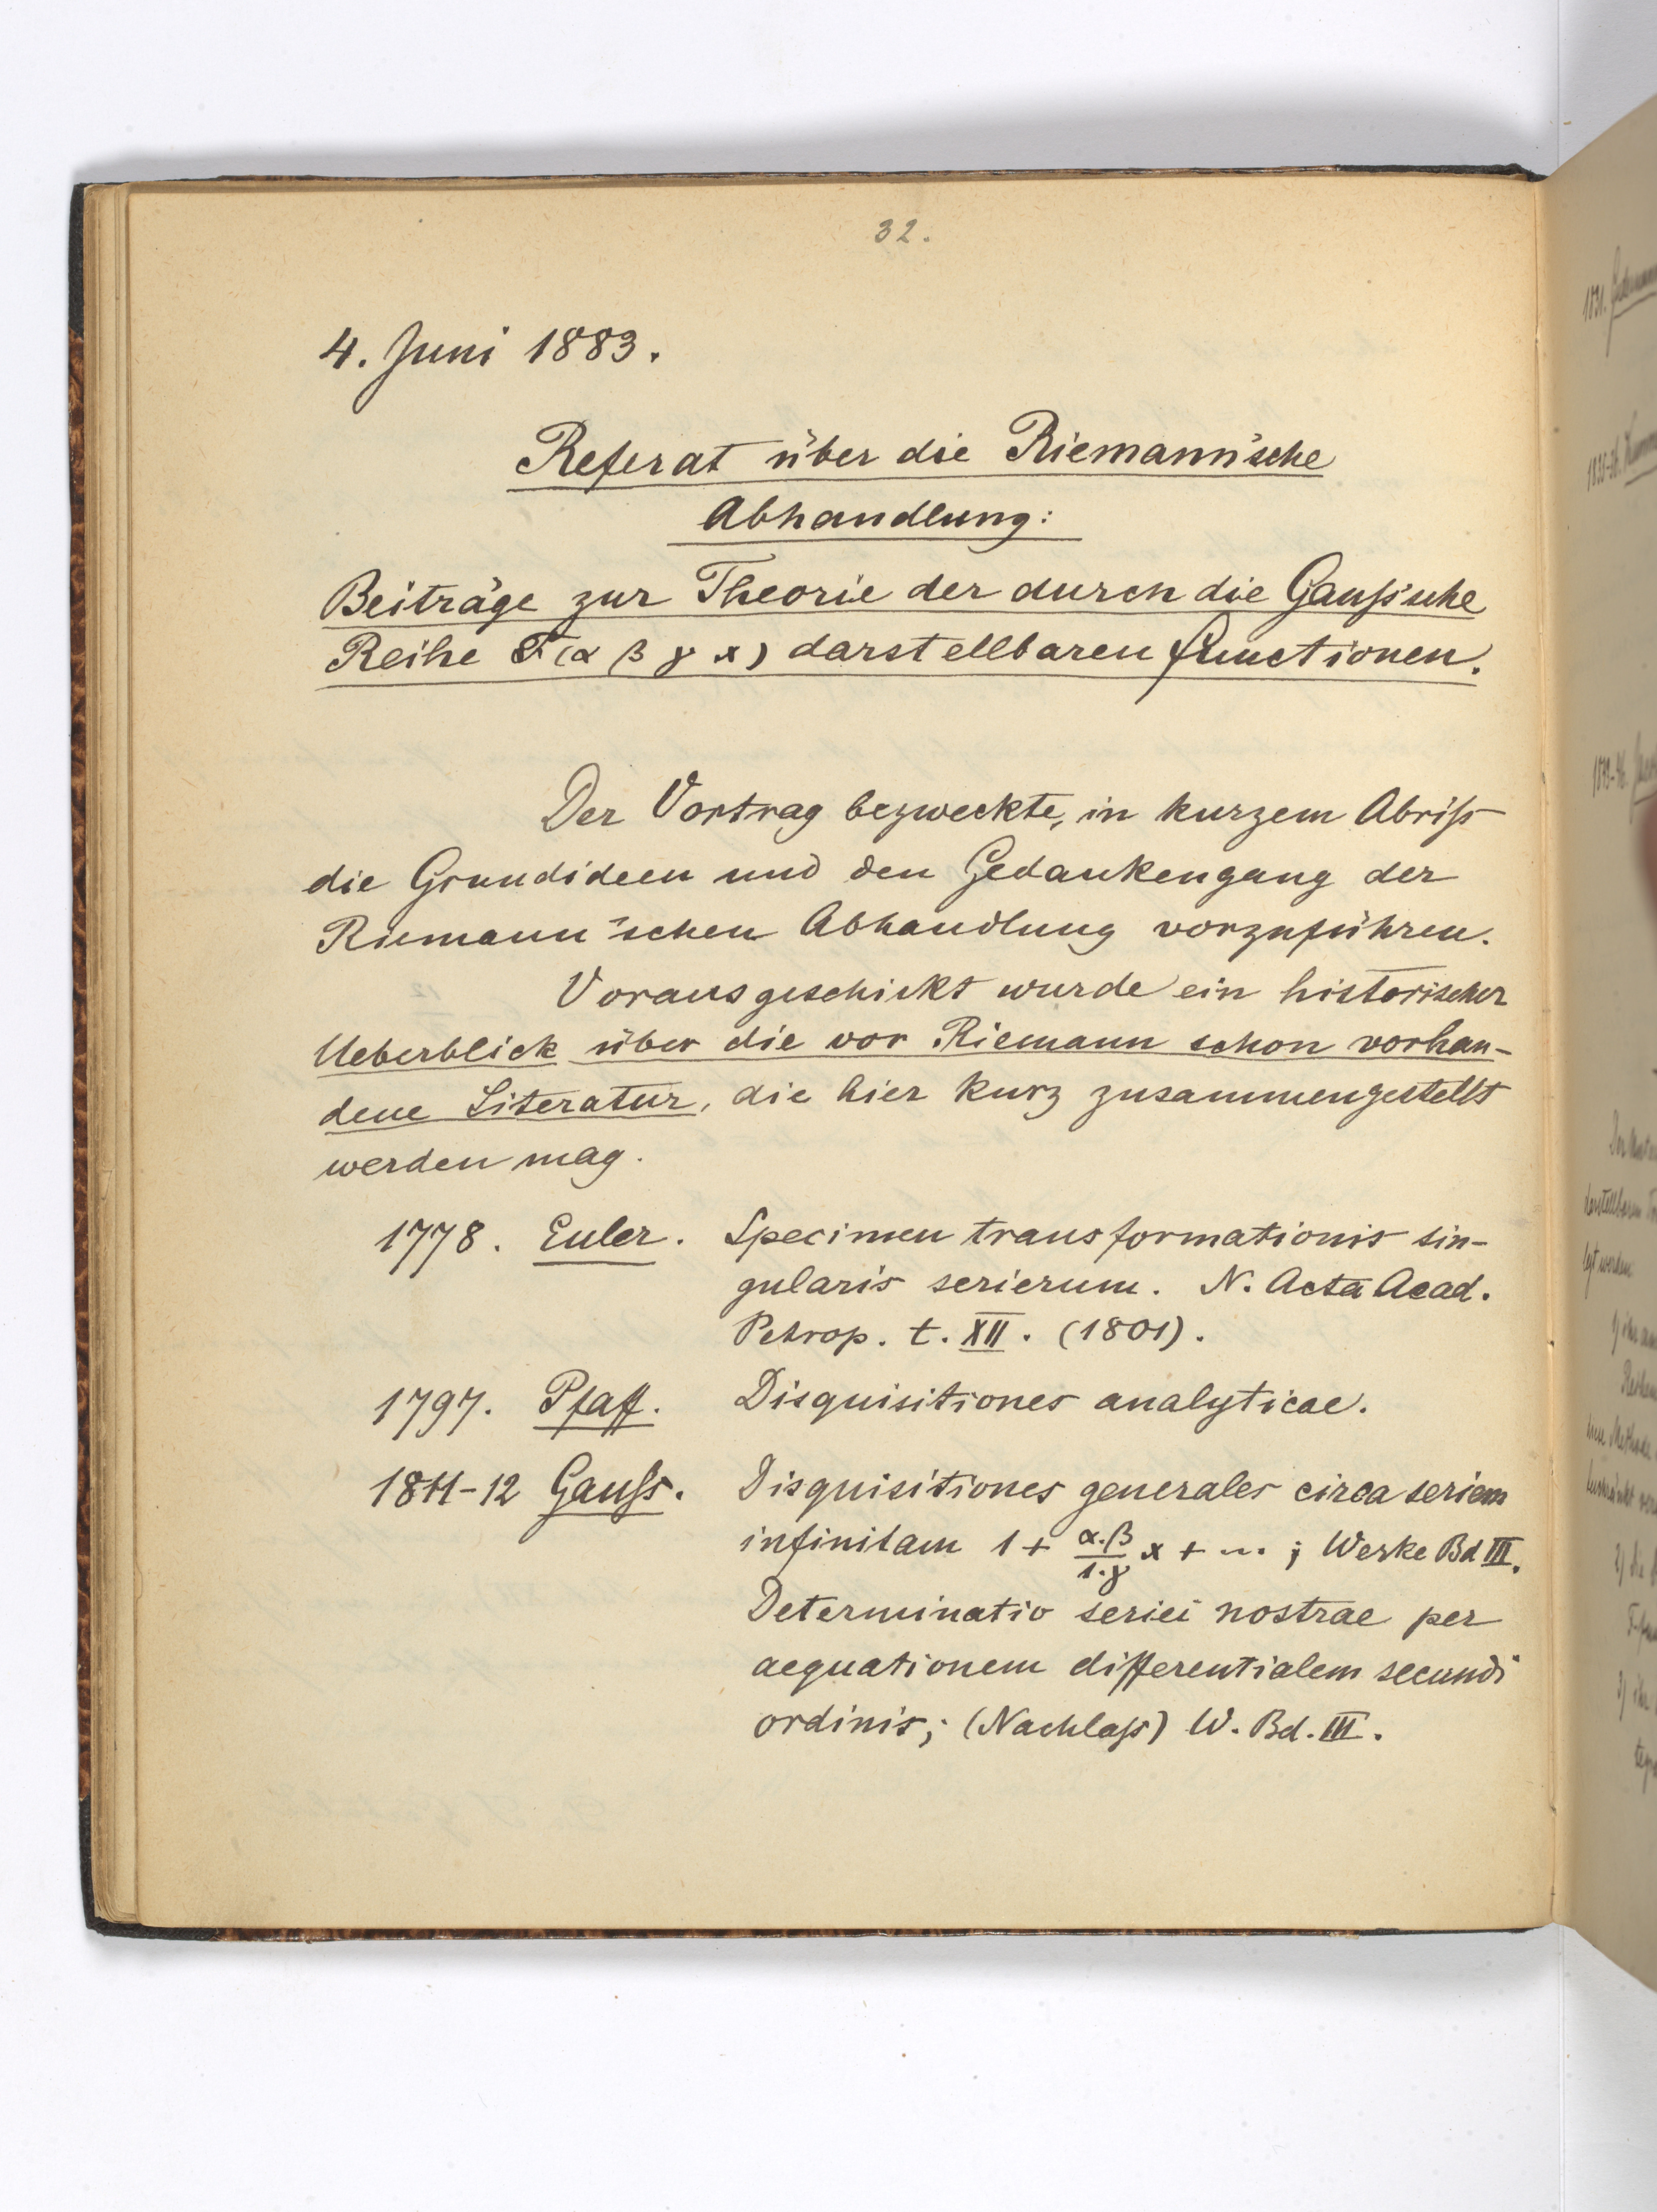 32.
4. Juni 1883.
Referat über die Riemann'sche
Abhandlung:
Beiträge zur Theorie der durch die Gauß'sche
Reihe F(α β γ x) darstellbaren Functionen.
Der Vortrag bezweckte, in kurzem Abriß
die Grundideen und den Gedankengang der
Riemann'schen Abhandlung vorzuführen.
Vorausgeschickt wurde ein historischer
Ueberblick über die vor Riemann schon vorhan-
dene Literatur, die hier kurz zusammengestellt
werden mag.
1778. Euler. Specimen transformationis sin-
gularis serierum. N. Acta Acad.
Petrop. t. XII. (1801).
1797. Pfaff. Disquisitiones analyticae.
1811-12 Gauß. Disquisitiones generales circa seriem
infinitam 1 + α.β/1.γ x + ... ; Werke Bd III.
Determinatio seriei nostrae per
aequationem differentialem secundi
ordinis; (Nachlaß) W. Bd. III.